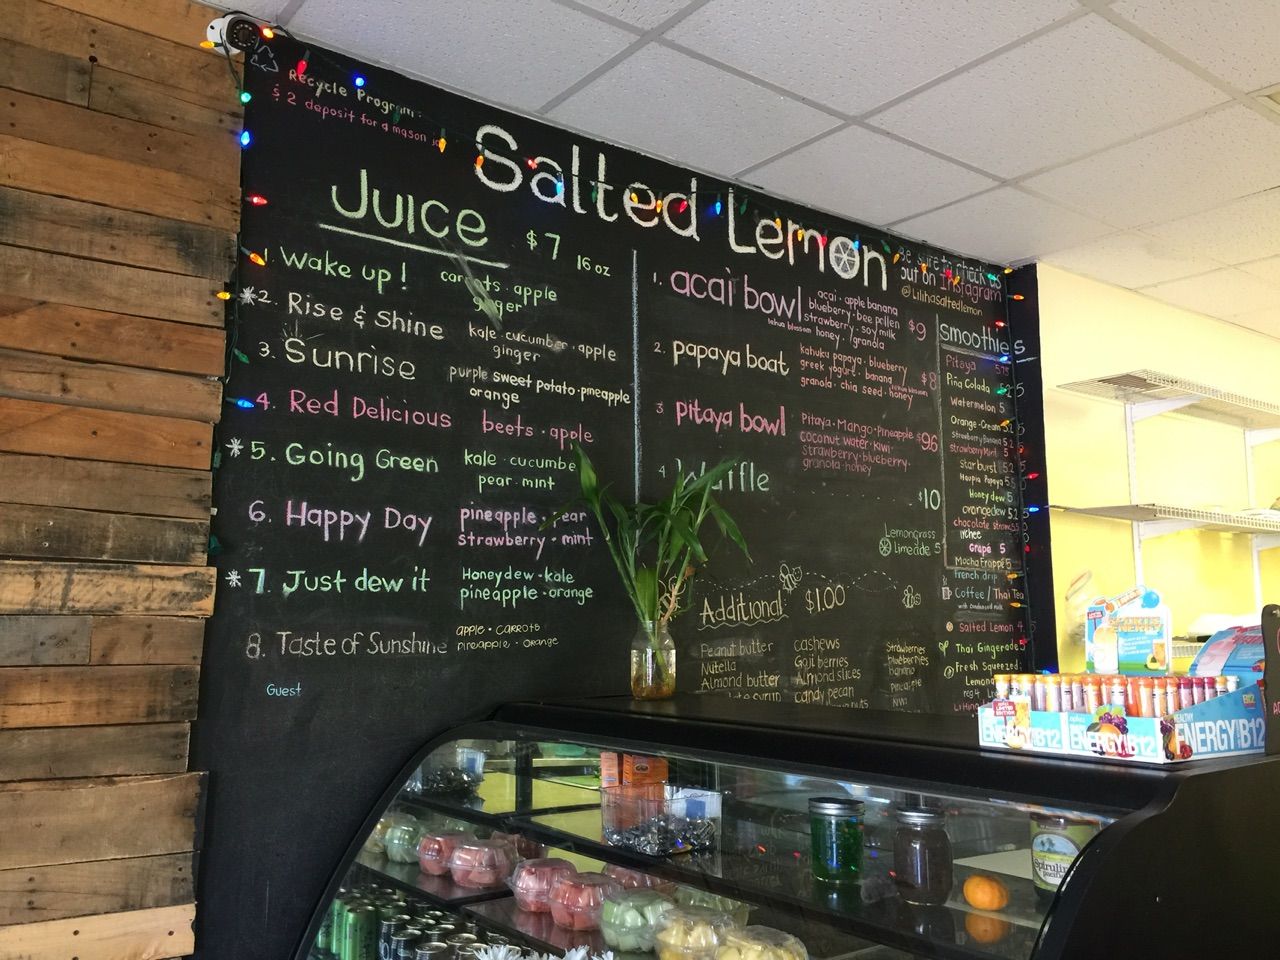 Recycle Program:
$2 deposit for a mason
Salted Lemon
Be sure to check us
out on Instagram
@Lilihasaltedlemon
Juice
$7 16 oz
1. Wake up! carrots · apple
ginger
*2. Rise & Shine kale · cucumber · apple
ginger
3. Sunrise purple sweet potato · pineapple
orange
4. Red Delicious beets · apple
*5. Going Green kale · cucumbe
pear · mint
6. Happy Day pineapple · pear
strawberry · mint
*7. Just dew it Honeydew · kale
pineapple · orange
8. Taste of Sunshine apple · carrots
pineapple · orange
Guest
1. acai bowl acai · apple banana
blueberry · bee pollen
strawberry · soy milk
lehua blossom honey · granola
$9
2. papaya boat kahuku papaya · blueberry
greek yogurt · banana
granola · chia seed · honey
$8
3 pitaya bowl Pitaya · Mango · Pineapple
coconut water · kiwi ·
strawberry · blueberry ·
granola · honey
4 Waffle
$10
Lemongrass
limeade 5
Additional: $1.00
Peanut butter
Nutella
Almond butter
cashews
Goji berries
Almond slices
candy pecan
Strawberries
blueberries
banana
Pineapple
Smoothies
Pitaya
Piña Colada
Watermelon 5
Orange-Cream
Strawberry Banana
Strawberry Mint
Starburst
Haupia Papaya
Honey dew 5
orangedew
chocolate
lychee
Grape 5
Mocha Frappe 5
French drip
Coffee / Thai Tea
with condensed milk
Salted Lemon 4
Thai Gingerade 5
Fresh Squeezed
Lemona
reg 4
LIMITED
EDITION
HEALTHY
ENERGY B12
ENERGY B12
ENERGY B12
SPORTS
ENERGY
Spirulina
pacifi